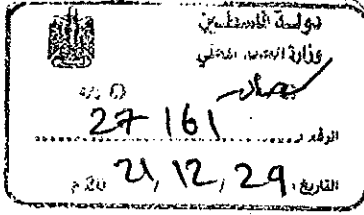 دولة فلسطين
وزارة الحكم المحلي
صادر
الرقم: 27161
التاريخ: 29 / 12 / 21 20 م